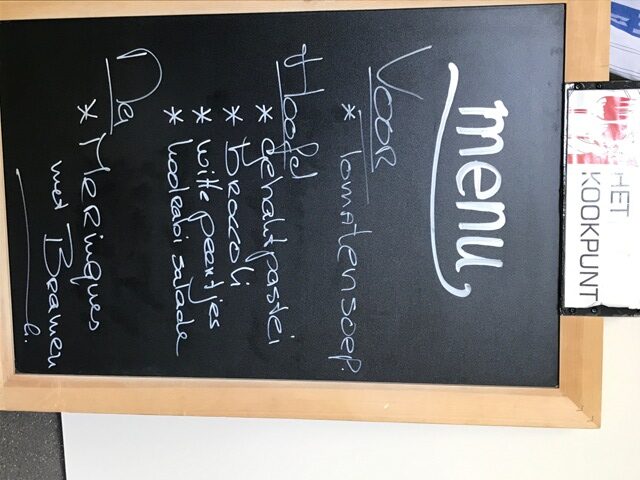 HET
KOOKPUNT
menu
Voor
* tomatensoep.
Hoofd
* gehaktpastei
* broccoli
* witte peentjes
* koolrabi salade
Na
* Meringues
met Bramen